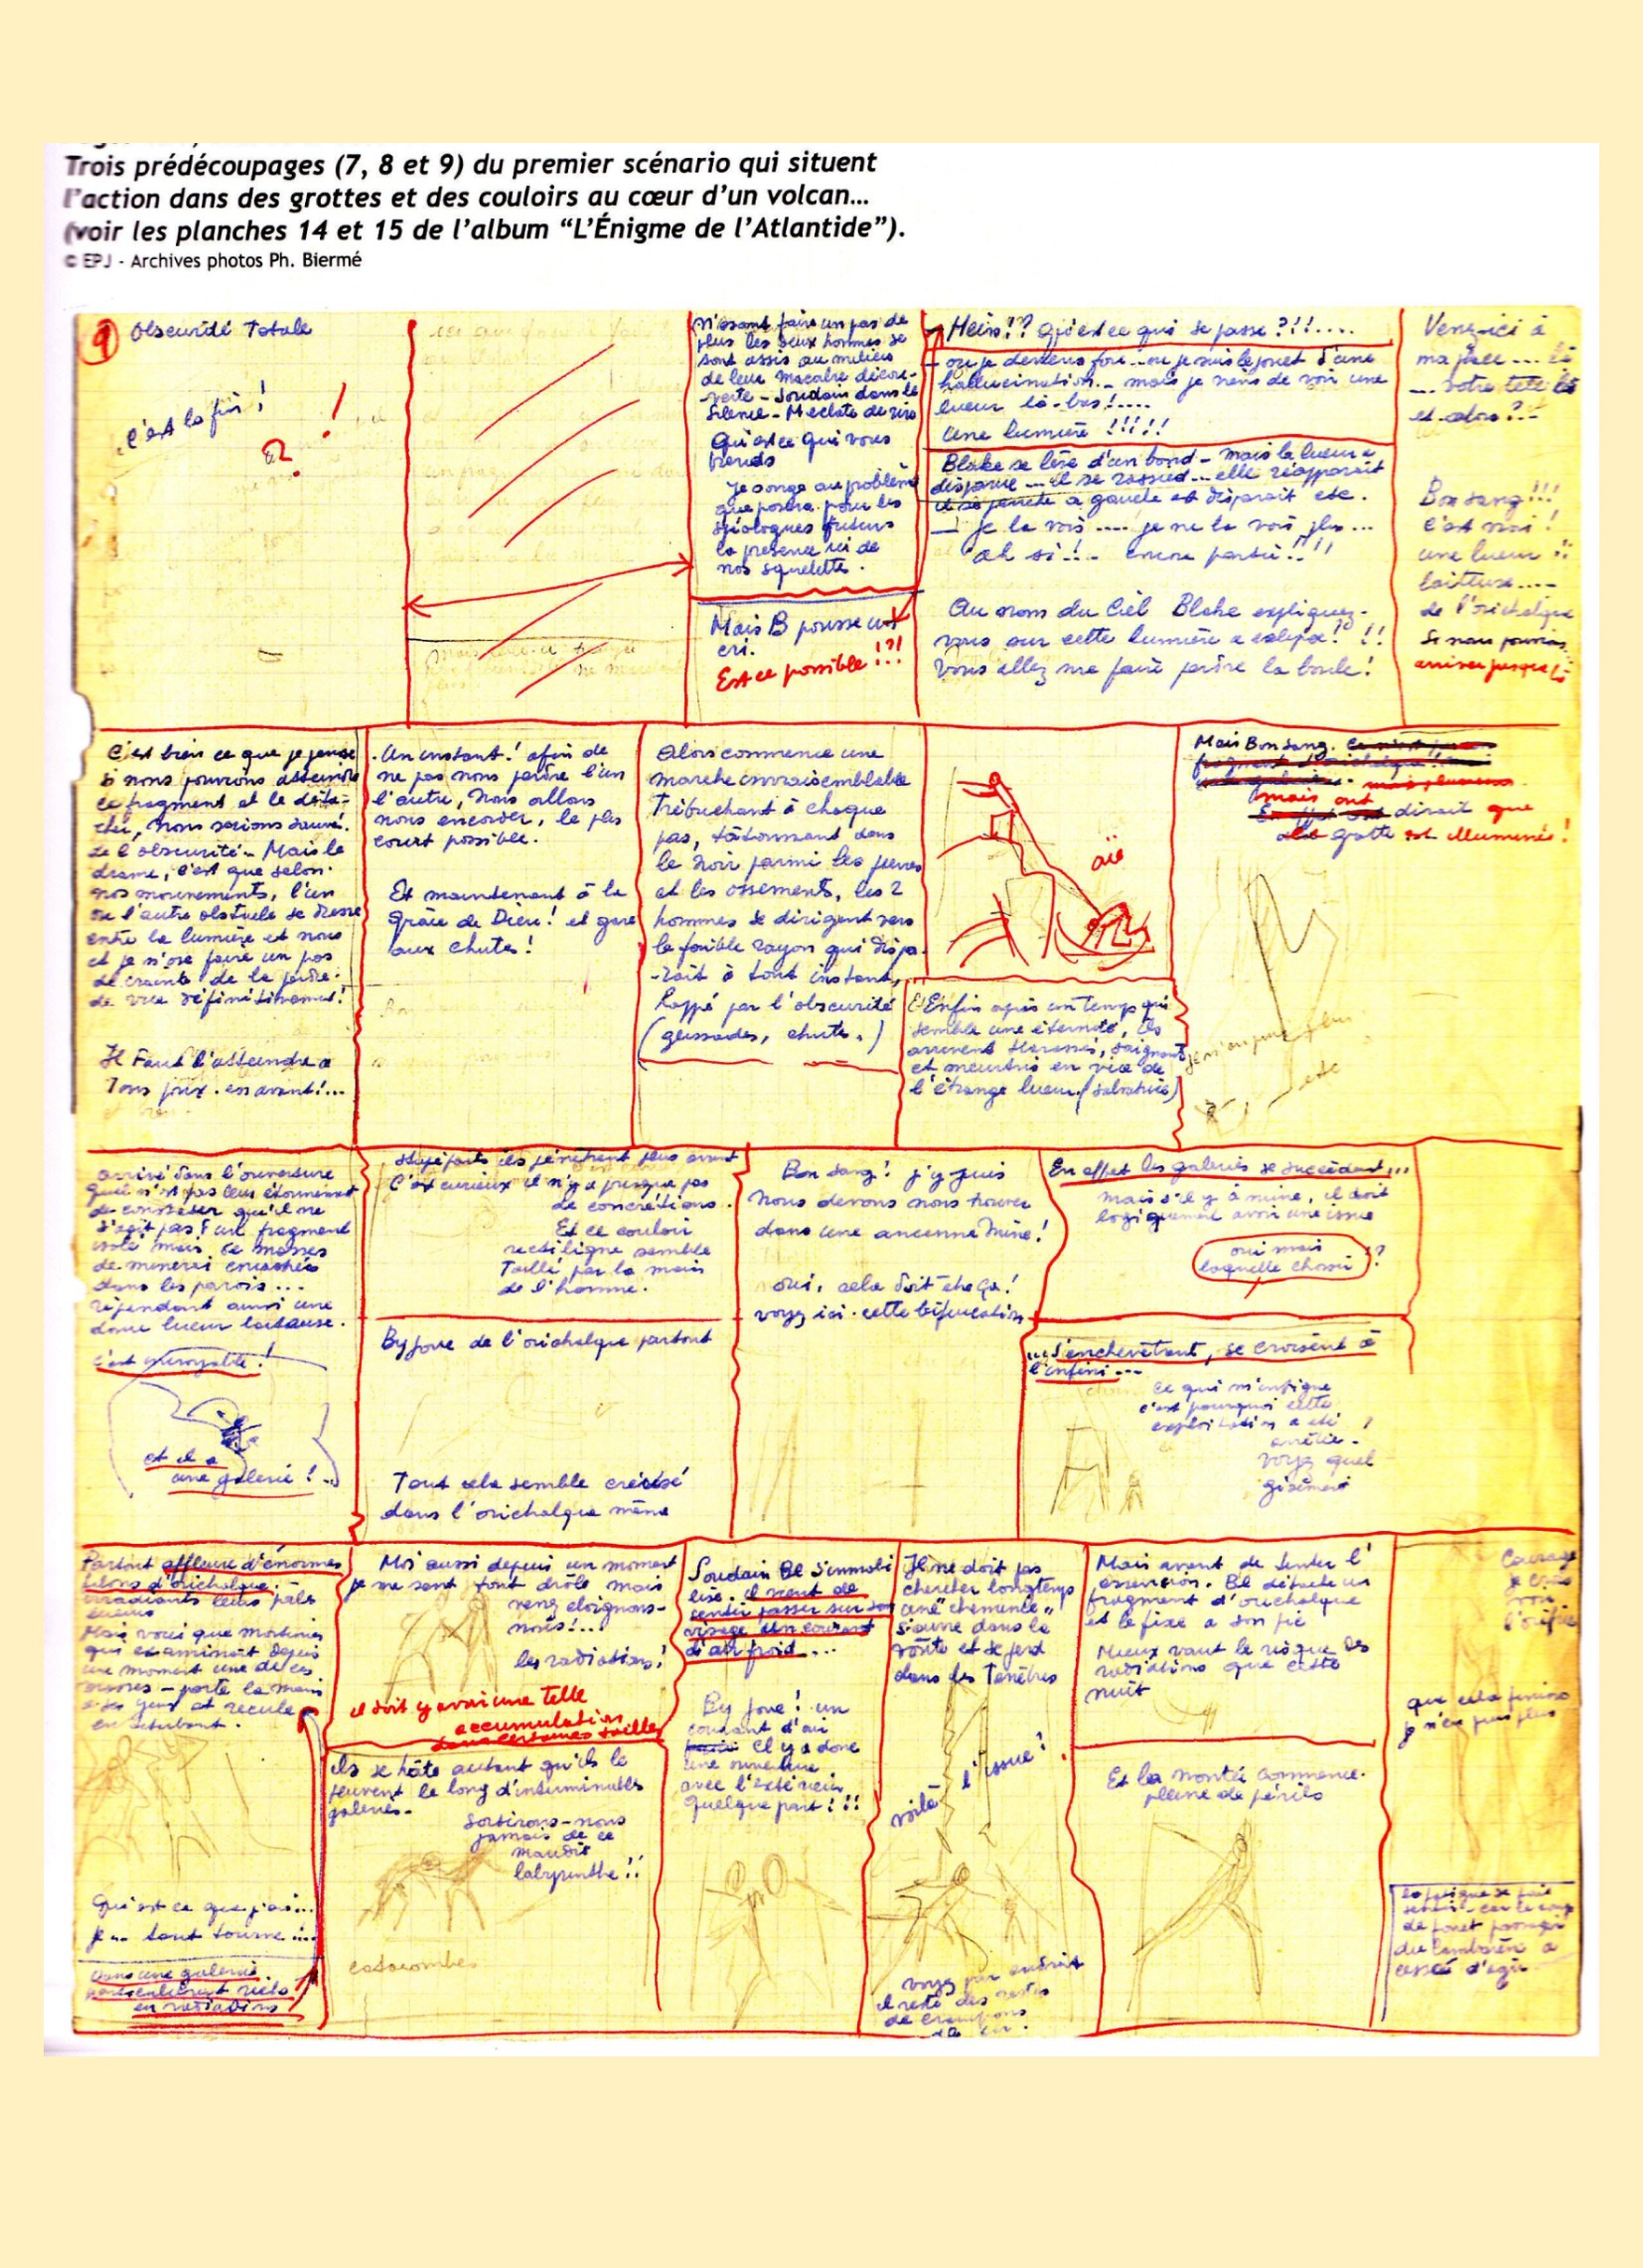 Trois prédécoupages (7, 8 et 9) du premier scénario qui situent
l'action dans des grottes et des couloirs au cœur d'un volcan…
(voir les planches 14 et 15 de l'album “L'Énigme de l'Atlantide”).
© EPJ - Archives photos Ph. Biermé
9 Obscurité Totale
C'est la fin !
!
et ?
N'osant faire un pas de
plus les deux hommes se
sont assis au milieu
de leur macabre décou-
verte - Soudain dans le
silence - M eclate de rire
Qu'est ce qui vous
prends
Je songe au problème
que posera pour les
spéologues futurs
la présence ici de
nos squelette.
Mais B pousse un
cri.
Est ce possible !?!
Hein !? Qu'est ce qui se passe ?!!....
- ou je deviens fou... ou je suis le jouet d'une
hallucination... mais je viens de voir une
lueur là-bas !....
Une lumière !!!!!
Blake se lève d'un bond - mais la lueur a
disparue... il se rassied... elle réapparait
il se penche a gauche et disparait etc.
— je la vois .... je ne la vois plus...
ah si !.. encore partie !!!!
Au nom du Ciel Blake expliquez-
vous sur cette lumière a eclipse ! !!
Vous allez me faire perdre la boule !
Venez-ici à
ma place .... là
.... votre tete là
et alors ?-
Bon sang !!!
C'est vrai !
une lueur !!
laiteuse....
de l'orichalque
Si nous pouvions
arriver jusque là
C'est bien ce que je pense
Si nous pouvions atteindre
ce fragment et le déta-
cher, nous serions sauvé.
de l'obscurité - Mais le
drame, c'est que selon
nos mouvements, l'un
ou l'autre obstacle se dresse
entre la lumière et nous
et je n'ose faire un pas
de crainte de la perdre
de vue définitivement !
Il Faut l'atteindre a
Tous prix . en avant !...
. Un instant ! afin de
ne pas nous perdre l'un
l'autre, nous allons
nous encorder, le plus
court possible.
Et maintenant à la
grâce de Dieu ! et gare
aux chutes !
Alors commence une
marche invraisemblable
Trébuchant à chaque
pas, tâtonnant dans
le noir parmi les pierres
et les ossements, les 2
hommes se dirigent vers
le faible rayon qui dispa-
-rait à tout instant,
happé par l'obscurité
(glissades, chute.)
aïe
Enfin après un temps qui
semble une éternité, ils
arrivent harassés, saignants
et meurtris en vue de
l'étrange lueur. (salvatrice)
Mais Bon Sang.
mais on
dirait que
la grotte est illuminée !
je n'en peux plus
etc
arrivé dans l'ouverture
quel n'est pas leur étonnement
de constater qu'il ne
s'agit pas d'un fragment
isolé mais de masses
de minerai enrochées
dans les parois...
répendant ainsi une
douce lueur laiteuse.
C'est incroyable !
et il a
une galerie !...
Stupéfaits ils pénétrent plus avant
C'est curieux il n'y a presque pas
de concrétions.
Et ce couloir
rectiligne semble
Taillé par la main
de l'homme.
By Jove de l'orichalque partout
Tout cela semble creusé
dans l'orichalque même
Bon sang ! j'y suis
Nous devons nous trouver
dans une ancienne Mine !
oui, cela doit être ça !
voyez ici cette bifurcation
En effet les galeries se succèdent...
mais s'il y a mine, il doit
logiquement avoir une issue
oui mais
laquelle choisir !?
... s'enchevètrent, se croisent à
l'infini...
Ce qui m'intrigue
c'est pourquoi cette
exploitation a été
arrêtée -
voyez quel
gisement
Partout affleure d'énormes
filons d'orichalque.
irradiants leurs pâles
lueurs
Mais voici que Mortimer
qui examinait depuis
un moment une de ces
- porte la main
a ses yeux et recule
en titubant.
Qu'est ce que j'ai...
Je ... tout tourne ....
Dans une galerie
particulièrement riche
en radiations
Moi aussi depuis un moment
je me sens tout drôle mais
venez eloignons-
nous !...
les radiations !
il doit y avoir une telle
accumulation
dans certaines tailles
Ils se hâte autant qu'ils le
peuvent le long d'interminables
galeries.
Sortirons-nous
jamais de ce
maudit
labyrinthe !!
catacombes
Soudain Bl s'immobi
lise. il vient de
sentir passer sur son
visage un courant
d'air froid...
By Jove ! un
courant d'air
Il y a donc
une ouverture
avec l'extérieur
quelque part !!!
Il ne doit pas
chercher longtemps
une "cheminée"
s'ouvre dans la
voûte et se perd
dans les Tenèbres
voilà l'issue !
voyez par endroit
il reste des restes
de crampons
de fer.
Mais avant de tenter l'
ascension. Bl détache un
fragment d'orichalque
et le fixe a son pic
Mieux vaut le risque des
radiations que cette
nuit
Et la montée commence.
pleine de périls
Courage
je crois
voir
l'orifice
que cela finisse
je n'en puis plus
la fatigue se fait
sentir - car le coup
de fouet
du a
cessé d'agir